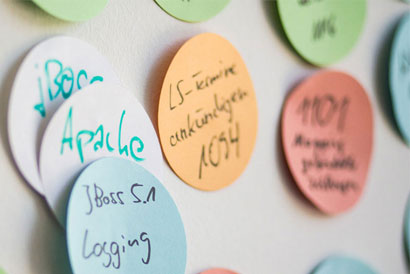 jBoss
Apache
JBoss 5.1
Logging
LS-Termine
ankündigen
1094
1101